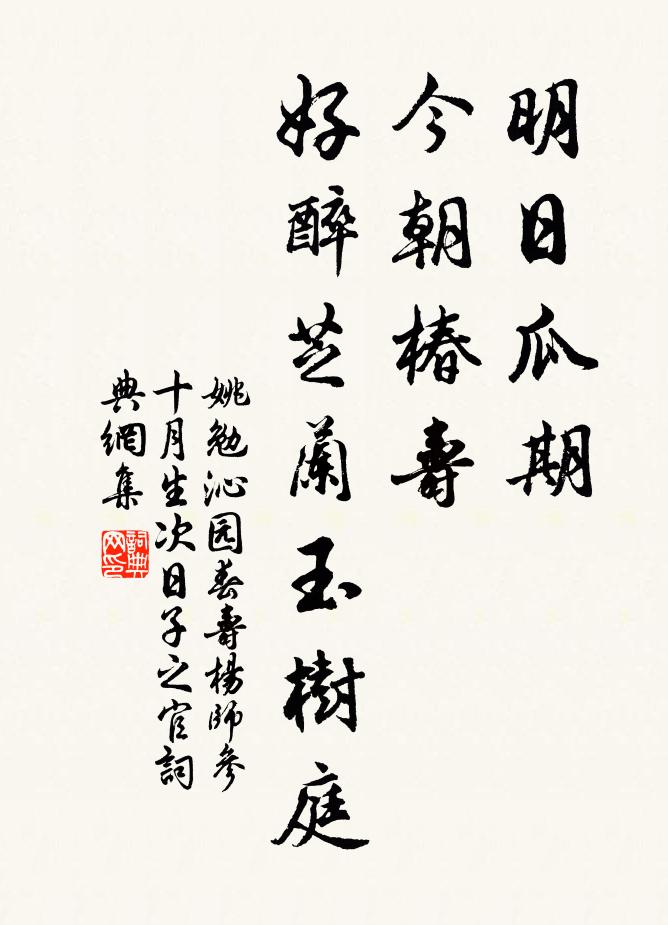 明日瓜期
今朝椿壽
好醉芝蘭玉樹庭
姚勉沁园春壽楊師參
十月生次日子之官詞
典網集
詞典
网印